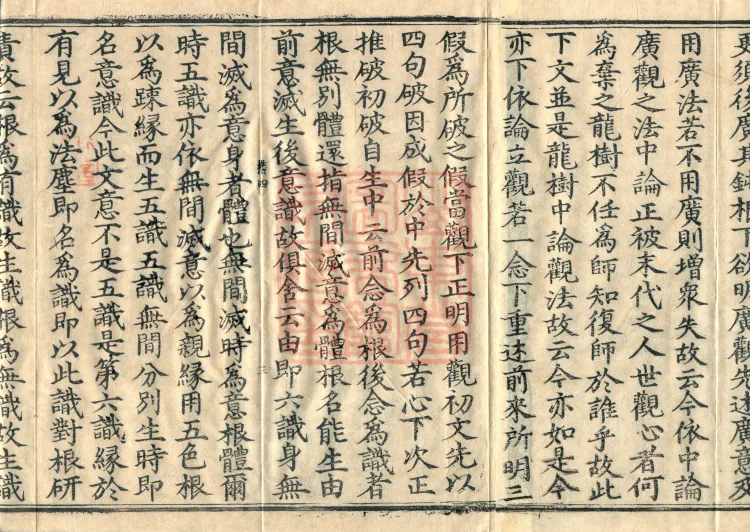 要須後廣具錄相下欲明廣觀先述廣意及
用廣法若不用廣則増衆失故云今依中論
廣觀之法中論正被末代之人世觀心者何
為棄之龍樹不任為師知復師於誰乎故此
下文並是龍樹中論觀法故云今亦如是今
亦下依論立觀若一念下重述前來所明三
假為所破之假當觀下正明用觀初文先以
四句破因成假於中先列四句若心下次正
推破初破自生中云前念為根後念為識者
根無別體還指無間滅意為體根名能生由
前意滅生後意識故俱舍云由即六識身無
間滅為意身者體也無間滅時為意根體爾
時五識亦依無間滅意以為親緣用五色根
以為踈緣而生五識五識無間分別生時即
名意識今此文意不是五識是第六識緣於
有見以為法塵即名為識即以此識對根研
責故云根為有識故生識根為無識故生識